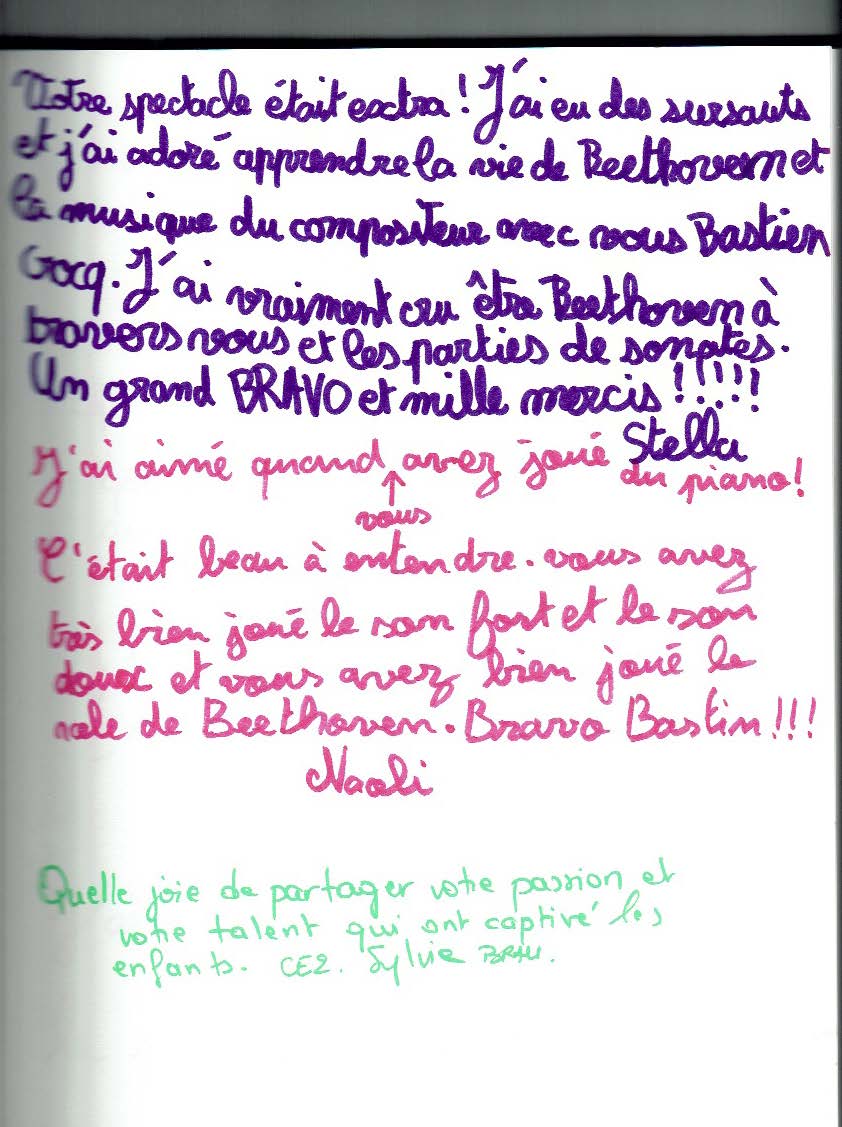 Votre spectacle était extra ! J'ai eu des sursauts
et j'ai adoré apprendre la vie de Beethoven et
la musique du compositeur avec vous Bastien
Gocq. J'ai vraiment cru être Beethoven à
travers vous et les parties de sonates.
Un grand BRAVO et mille mercis !!!!!
Stella
J'ai aimé quand avez joué du piano !
vous
C'était beau à entendre. vous avez
très bien joué le son fort et le son
doux et vous avez bien joué le
role de Beethoven. Bravo Bastin !!!
Naoli
Quelle joie de partager votre passion et
votre talent qui ont captivé les
enfants. CE2. Sylvie